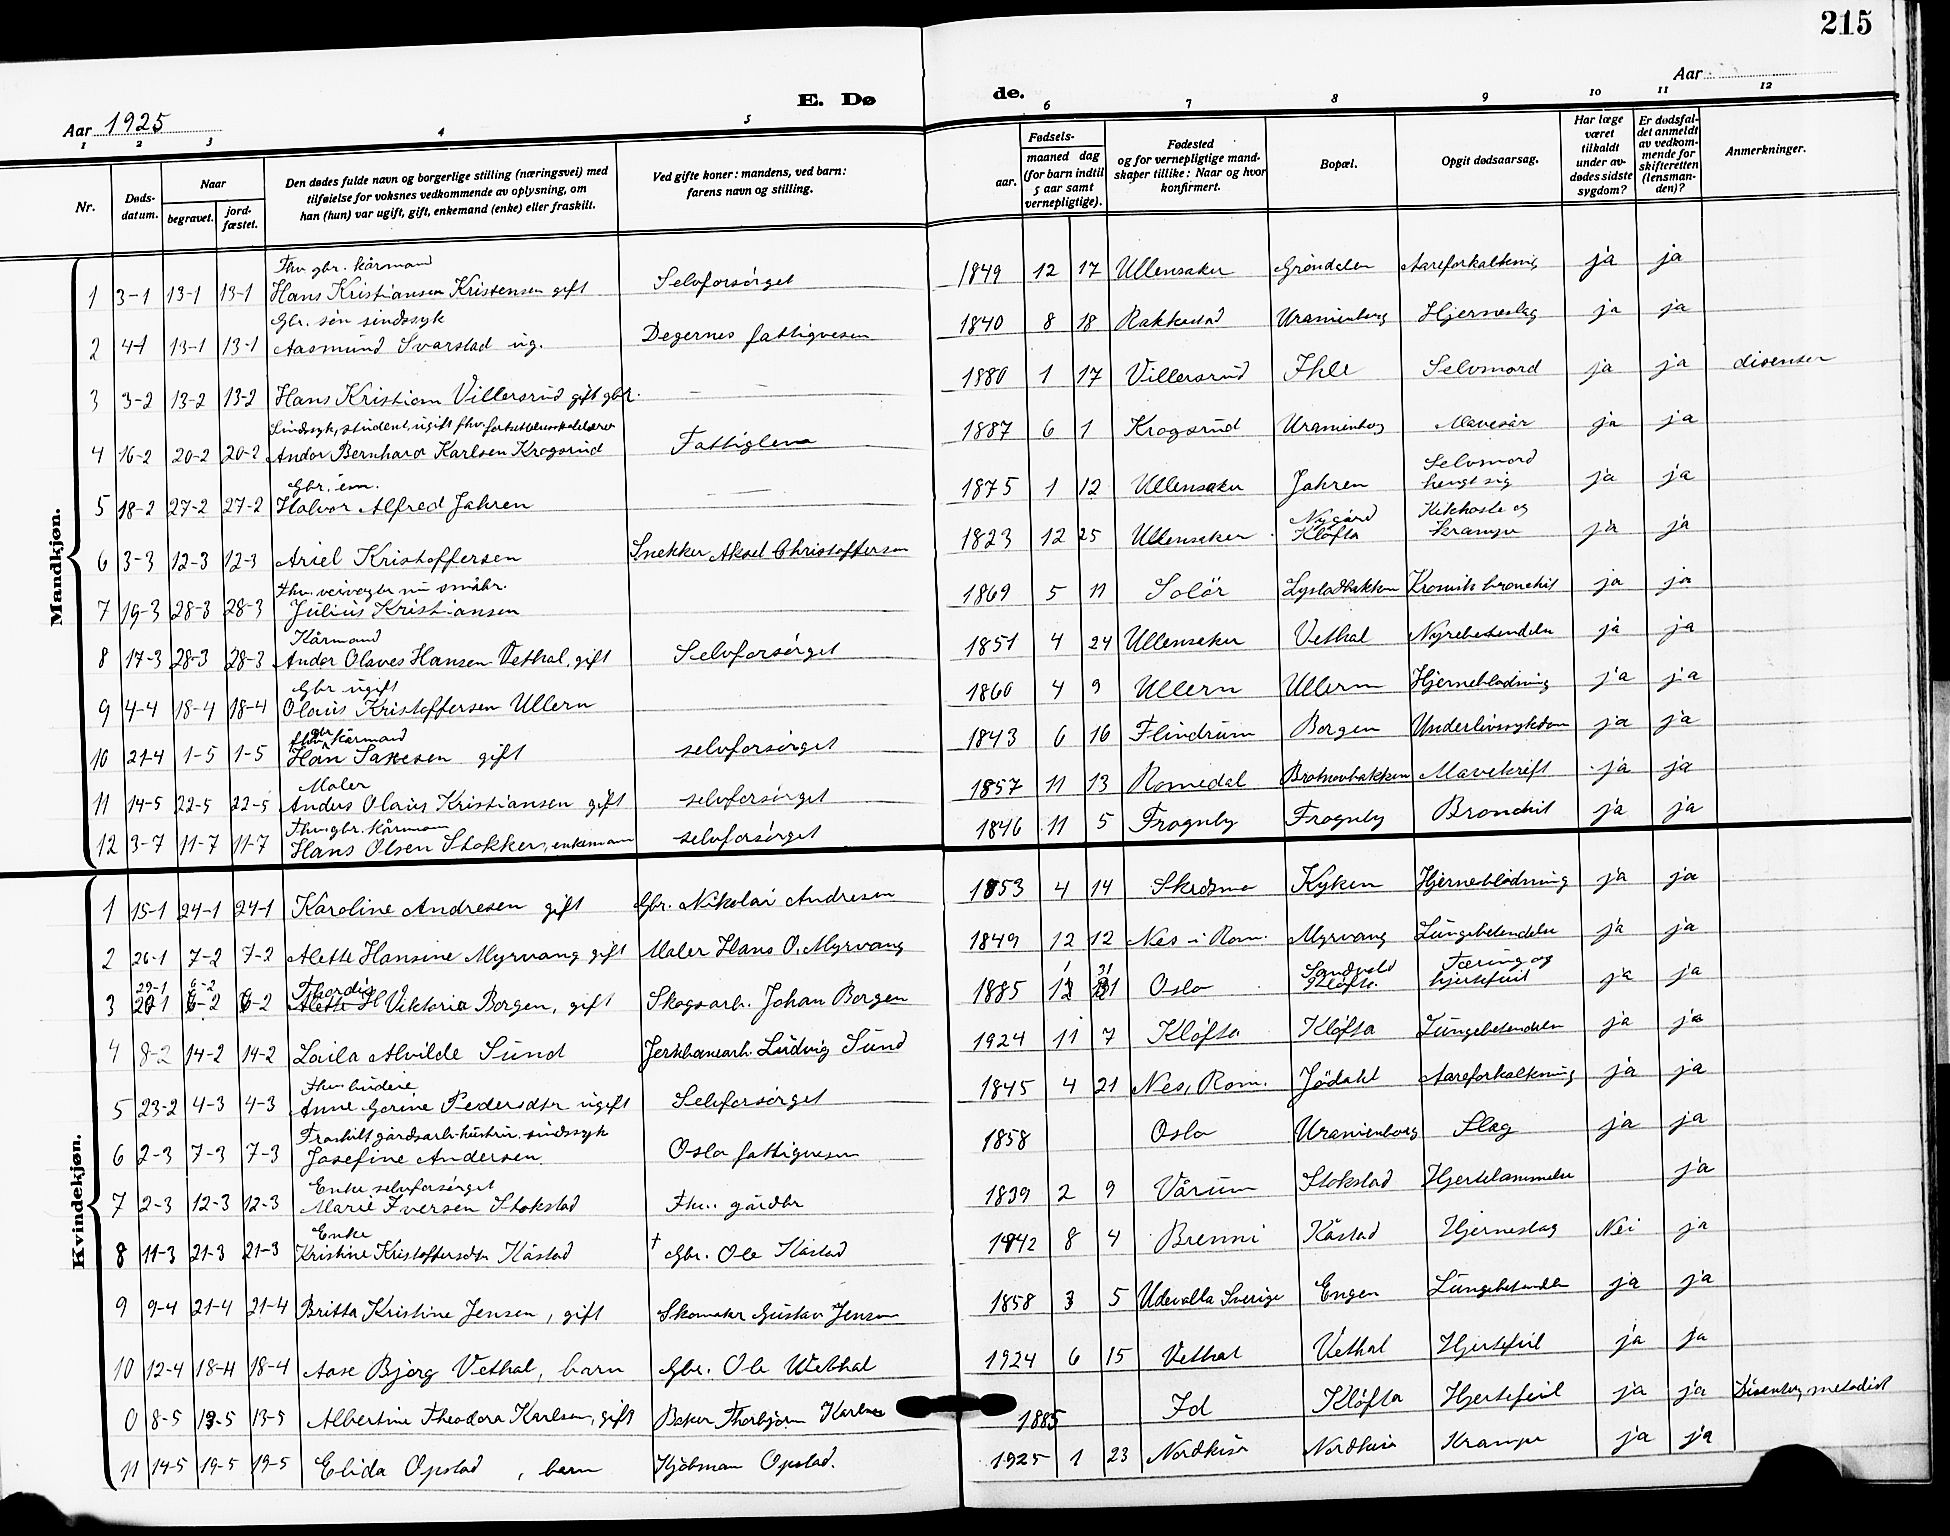 215
Aar 1925
E. Dø
de.
Aar
1 2 3 4 5 6 7 8 9 10 11 12
Nr.
Døds-
datum.
Naar
begravet.
jord-
fæstet.
Den dødes fulde navn og borgerlige stilling (næringsvei) med
tilføielse for voksnes vedkommende av oplysning, om
han (hun) var ugift, gift, enkemand (enke) eller fraskilt.
Ved gifte koner: mandens, ved barn:
farens navn og stilling.
Fødsels-
aar.
maaned dag
(for barn indtil
5 aar samt
vernepligtige).
Fødested
og for vernepligtige mand-
skaper tillike: Naar og hvor
konfirmert.
Bopæl.
Opgit dødsaarsag.
Har læge
været
tilkaldt
under av-
dødes sidste
sygdom?
Er dødsfal-
det anmeldt
av vedkom-
mende for
skifteretten
(lensman-
den)?
Anmerkninger.
Mandkjøn.
Fhv. gbr. kårmand
1 3-1 13-1 13-1 Hans Kristiansen Kristensen gift Selvforsørget 1849 12 17 Ullensaker Grøndalen Aareforkalkning ja ja
Gbr. søn sindssyk
2 4-1 13-1 13-1 Aasmund Svarstad ug. Degernes fattigvesen 1840 8 18 Rakkestad Uranienborg Hjerneslag ja ja
3 3-2 13-2 13-2 Hans Kristian Villersrud gift gbr. — — 1880 1 17 Villersrud Ihle Selvmord ja ja disenter
Sindssyk, student, ugift fhv.
4 16-2 20-2 20-2 Andor Bernhard Karlsen Krogsrud Fattiglem 1887 6 1 Krogsrud Uranienborg Mavesår ja ja
Gbr. em.
5 18-2 27-2 27-2 Halvor Alfred Jahren — — 1875 1 12 Ullensaker Jahren Selvmord hengt sig ja ja
6 3-3 12-3 12-3 Ariel Kristoffersen Snekker Aksel Christoffersen 1823 12 25 Ullensaker Nygård Kløfta Kikhoste og krampe ja ja
Fhv. veivogter nu småbr.
7 19-3 28-3 28-3 Julius Kristiansen 1869 5 11 Solør Lystadbakken Kronisk bronchit ja ja
Kårmand
8 17-3 28-3 28-3 Andor Olaves Hansen Vethal, gift Selvforsørget 1851 4 24 Ullensaker Vethal Nyrebetendelse ja ja
Gbr ugift
9 4-4 18-4 18-4 Olaus Kristoffersen Ullern 1860 4 9 Ullern Ullern Hjerneblødning ja ja
fhv. gbr kårmand
10 21-4 1-5 1-5 Han Saxesen gift selvforsørget 1843 6 16 Flindrum Borgen Underlivssykdom ja ja
Maler
11 14-5 22-5 22-5 Anders Olaus Kristiansen gift selvforsørget 1857 11 13 Romedal Brotnovbakken Mavekræft ja ja
Fhv. gbr. kårmann
12 3-7 11-7 11-7 Hans Olsen Stokker, enkemann selvforsørget 1846 11 5 Frognby Frognby Bronchit ja ja
Kvindekjøn.
1 15-1 24-1 24-1 Karoline Andresen gift Gbr. Nikolai Andresen 1853 4 14 Skedsmo Kyken Hjerneblødning ja ja
2 26-1 7-2 7-2 Alette Hansine Myrvang gift Maler Hans O. Myrvang 1849 12 12 Nes i Rom. Myrvang Lungebetendelse ja ja
29-1 6-2 Thordis
3 20-1 6-2 6-2 Alette H Viktoria Borgen, gift Skogsarb. Johan Borgen 1885 1 31 Oslo Sandvold Kløfta Tæring og hjertefeil ja ja
4 8-2 14-2 14-2 Laila Alvilde Sund Jernbanearb. Ludvig Sund 1924 11 7 Kløfta Kløfta Lungebetendelse ja ja
Fhv. budeie
5 23-2 4-3 4-3 Anne Gorine Pedersdtr ugift Selvforsørget 1845 4 21 Nes, Rom. Jödahl Aareforkalkning ja ja
Fraskilt gårdsarb. hustru. sindssyk
6 2-3 7-3 7-3 Josefine Andersen. Oslo fattigvesen 1858 Oslo Uranienborg Slag ja ja
Enke selvforsørget
7 2-3 12-3 12-3 Marie Iversen Stokstad Fhv. gårdbr 1839 2 9 Vårum Stokstad Hjertelammelse ja
Enke
8 11-3 21-3 21-3 Kristine Kristoffersdtr Kåstad † Gbr. Ole Kåstad 1842 8 4 Brenni Kåstad Hjerneslag Nei ja
9 9-4 21-4 21-4 Britta Kristine Jensen, gift Skomaker Gustav Jensen 1858 3 5 Udevalla Sverige Engen Lungebetendelse ja ja
10 12-4 18-4 18-4 Aase Bjørg Vethal, barn Gbr. Ole Wethal 1924 6 15 Vethal Vethal Hjertefeil ja ja
0 8-5 13-5 13-5 Albertine Theodora Karlsen, gift Baker Thorbjørn Karlsen 1885 Id Kløfta Hjertefeil ja ja Disenter, metodist
11 14-5 19-5 19-5 Elida Opstad, barn Kjøbman Opstad. 1925 1 23 Nordkisa Nordkisa Krampe ja ja